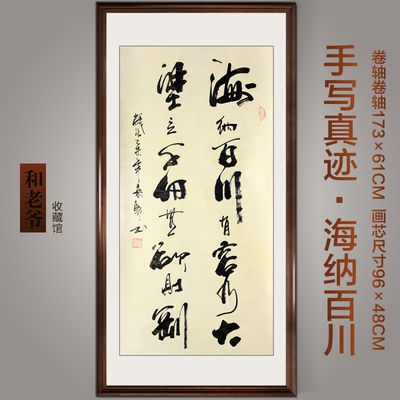 卷轴卷轴173×61CM 画芯尺寸96×48CM
手写真迹·海纳百川
海纳百川有容乃大
壁立千仞無欲则剛
和老爷
收藏馆